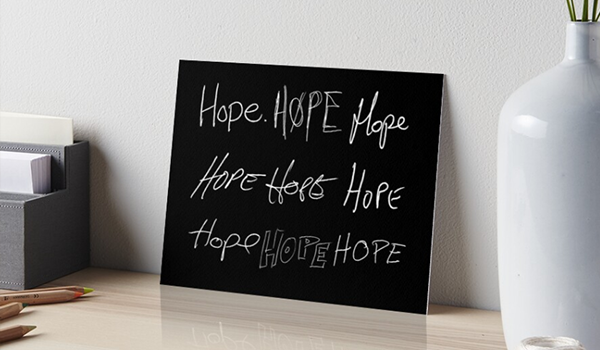 Hope. HØPE Hope
HOPE HOPE HOPE
Hope HOPE HOPE